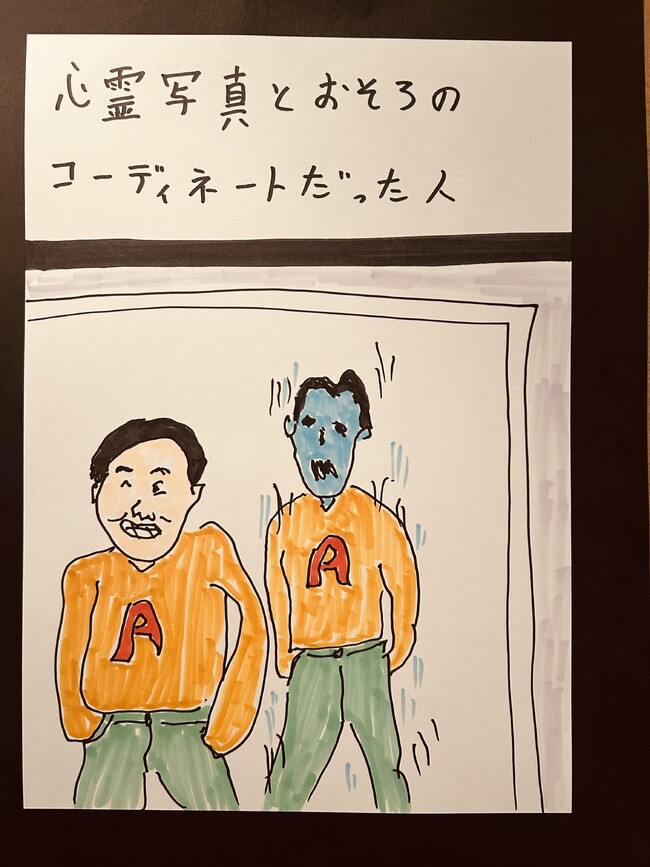 心霊写真とおそろの
コーディネートだった人
A
A